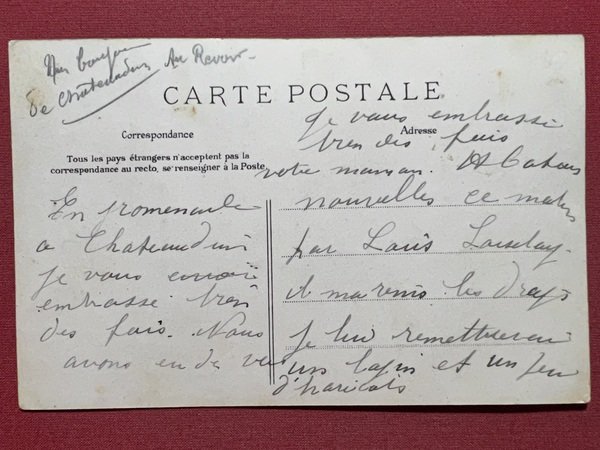 Un bonjour Au Revoir
de Châteaudun
CARTE POSTALE
Correspondance
Adresse
Tous les pays étrangers n'acceptent pas la
correspondance au recto, se renseigner à la Poste.
En promenade
a Chateaudun
je vous envoi
embrasse très
des fois. Nous
avons eu de vos
nouvelles ce matin
par Louis
il m'a remis les draps
je lui remettrerai
un lapin et un peu
d'haricots
je vous embrasse
bien des fois
votre maman.